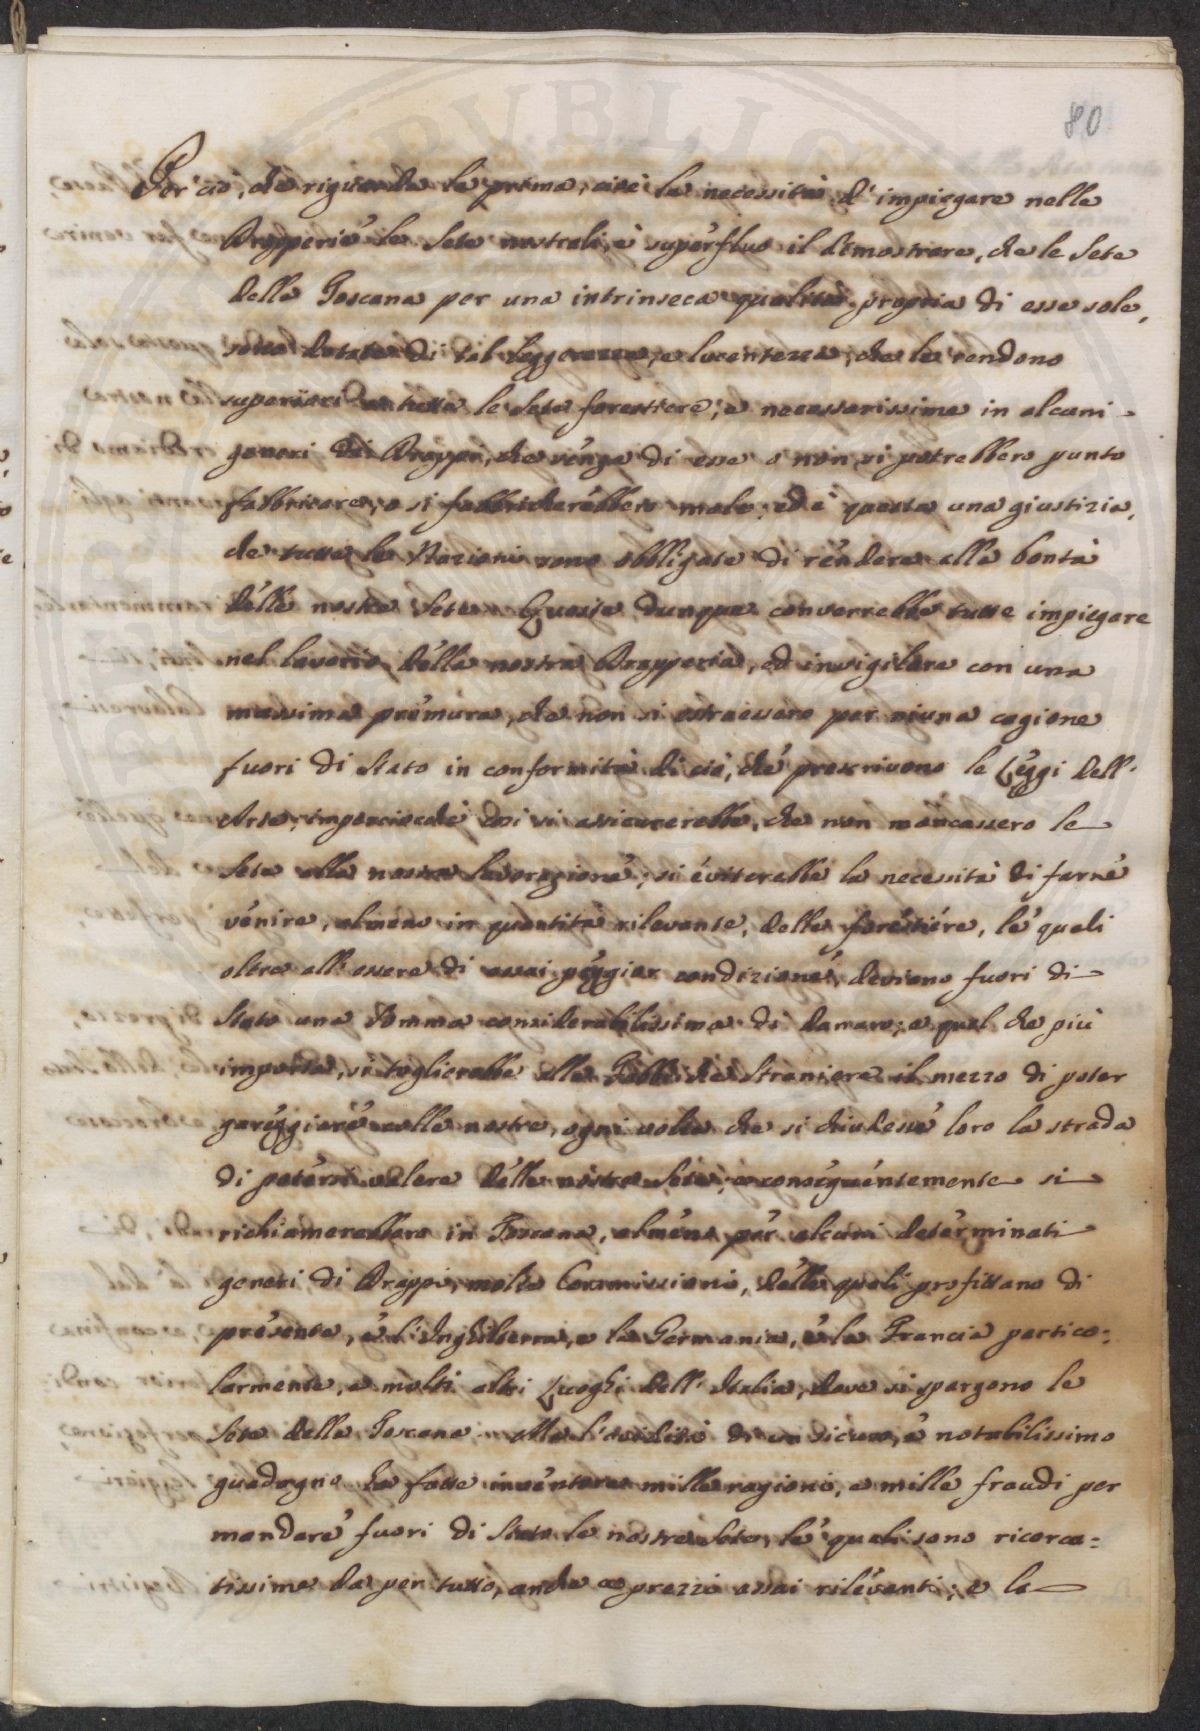 80
Per ciò, che riguarda la prima, cioè la necessità d'impiegare nelle
Drapperie le Sete nostrali, è superfluo il dimostrare, che le Sete
della Toscana per una intrinseca qualità propria di esse sole,
sono dotate di tal leggerezza, e lucentezza, che le rendono
superiori a tutte le Sete forestiere, e necessarissime in alcuni
generi di Drappi, che senza di esse o non si potrebbero punto
fabbricare, o si fabbricherebbero male; ed è questa una giustizia,
che tutte le Nazioni sono obbligate di rendere alla bontà
delle nostre Sete. Queste dunque converrebbe tutte impiegare
nel lavorìo della nostra Drapperia, ed invigilare con una
massima premura, che non si estraessero per niuna cagione
fuori di Stato in conformità di ciò, che prescrivono le Leggi dell'
Arte; imperciocchè così si assicurerebbe, che non mancassero le
Sete alla nostra lavorazione; si eviterebbe la necessità di farne
venire, almeno in quantità rilevante, delle forestiere, le quali
oltre all'essere di assai peggior condizione, deviano fuori di
Stato una somma considerabilissima di danaro; e quel che più
importa, si toglierebbe alle Fabbriche Straniere il mezzo di poter
gareggiare colle nostre, ogni volta che si chiudesse loro la strada
di potersi valere delle nostre Sete; e conseguentemente si
richiamerebbero in Toscana, almeno per alcuni determinati
generi di Drappi, molte Commissioni, delle quali profittano di
presente, e l'Inghilterra, e la Germania, e la Francia partico=
larmente, e molti altri Luoghi dell'Italia, dove si spargono le
Sete della Toscana. Ma l'avidità di un sicuro, e notabilissimo
guadagno ha fatte inventare mille ragioni, e mille fraudi per
mandare fuori di Stato le nostre Sete, le quali sono ricerca=
tissime da per tutto, anche a prezzi assai rilevanti; e le